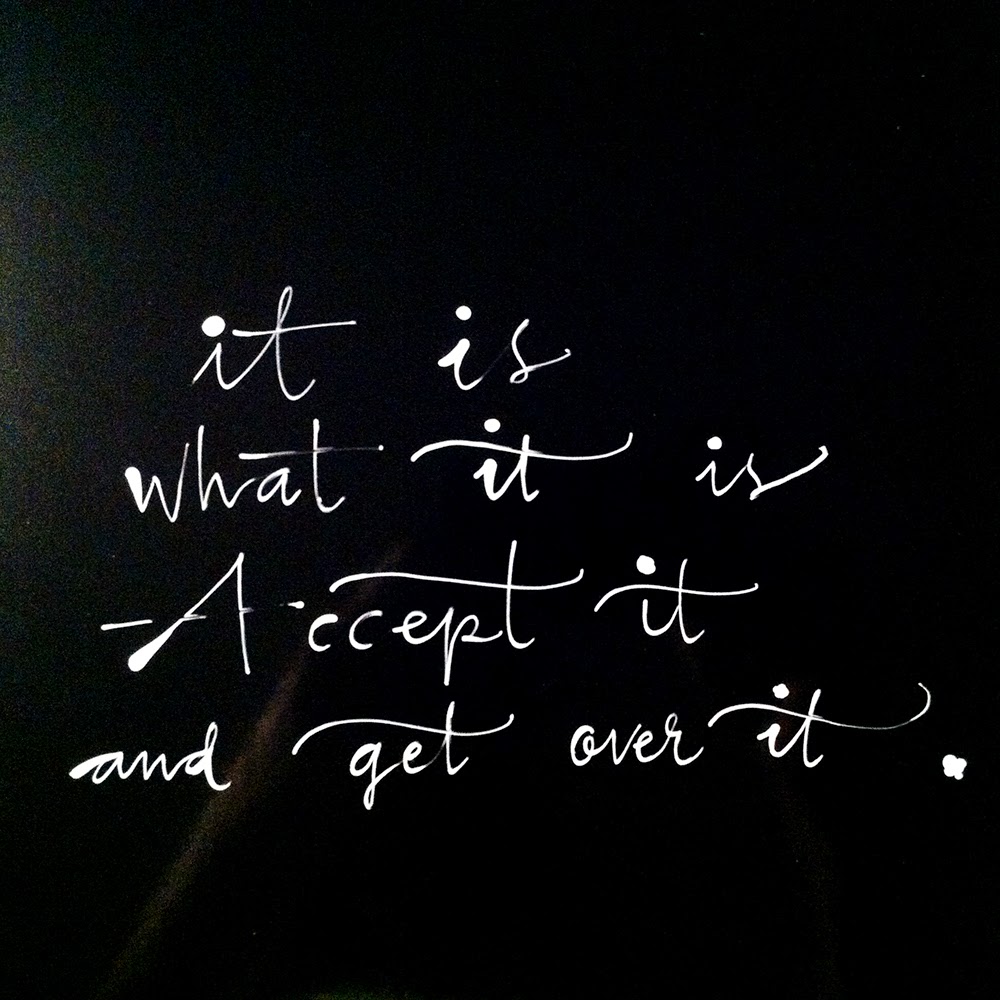 it is
what it is
Accept it
and get over it.